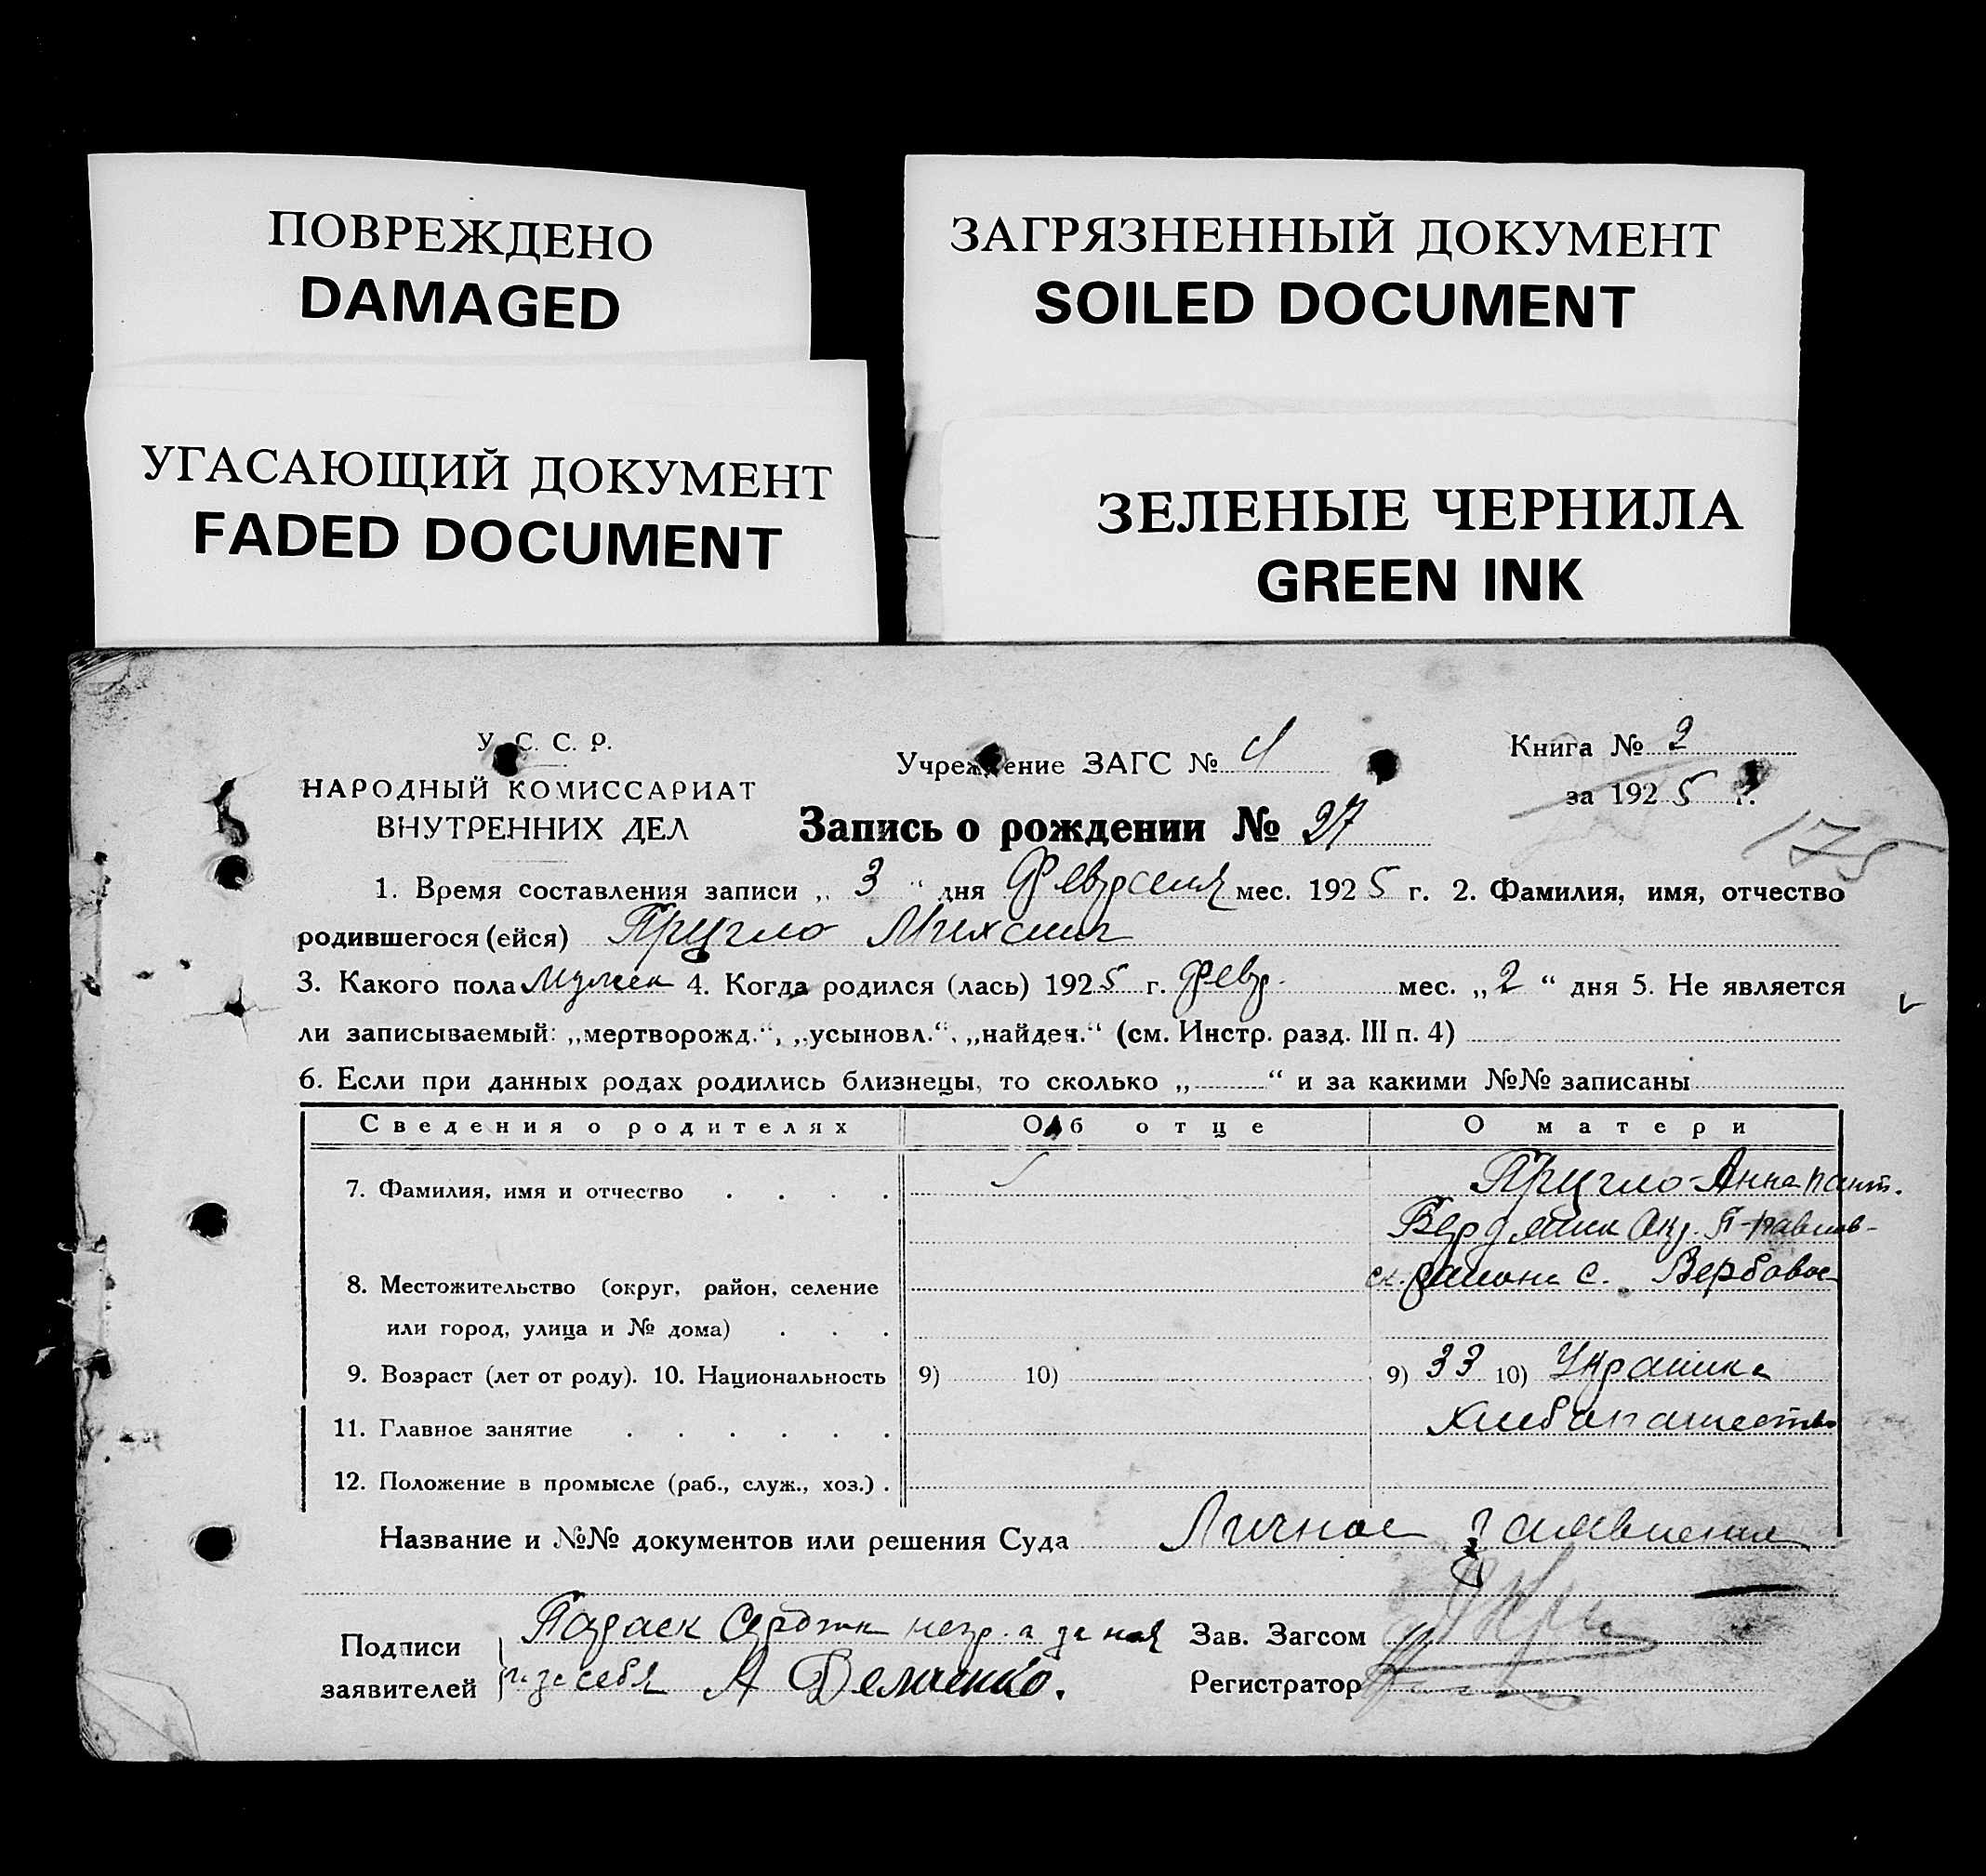 ПОВРЕЖДЕНО
DAMAGED
ЗАГРЯЗНЕННЫЙ ДОКУМЕНТ
SOILED DOCUMENT
УГАСАЮЩИЙ ДОКУМЕНТ
FADED DOCUMENT
ЗЕЛЕНЫЕ ЧЕРНИЛА
GREEN INK
У. С. С. Р.
НАРОДНЫЙ КОМИССАРИАТ
ВНУТРЕННИХ ДЕЛ
Учреждение ЗАГС № 4
Книга № 2
за 1925 г.
175
Запись о рождении № 27
1. Время составления записи „ 3 “ дня Февраля мес. 1925 г. 2. Фамилия, имя, отчество
родившегося (ейся) Пругло Михаил
3. Какого пола мужск 4. Когда родился (лась) 1925 г. февр. мес. „ 2 “ дня 5. Не является
ли записываемый: „мертворожд.“, „усыновл.“, „найден.“ (см. Инстр. разд. III п. 4)
6. Если при данных родах родились близнецы, то сколько „ “ и за какими №№ записаны
Сведения о родителях Об отце О матери
7. Фамилия, имя и отчество Пругло Анна пант.
окр.
8. Местожительство (округ, район, селение района с. Вербовое
или город, улица и № дома)
9. Возраст (лет от роду). 10. Национальность 9) 10) 9) 33 10) Украинка
11. Главное занятие Хлебопашество
12. Положение в промысле (раб., служ., хоз.)
Название и №№ документов или решения Суда Личное заявление
Подписи
заявителей
за себя А
Зав. Загсом
Регистратор